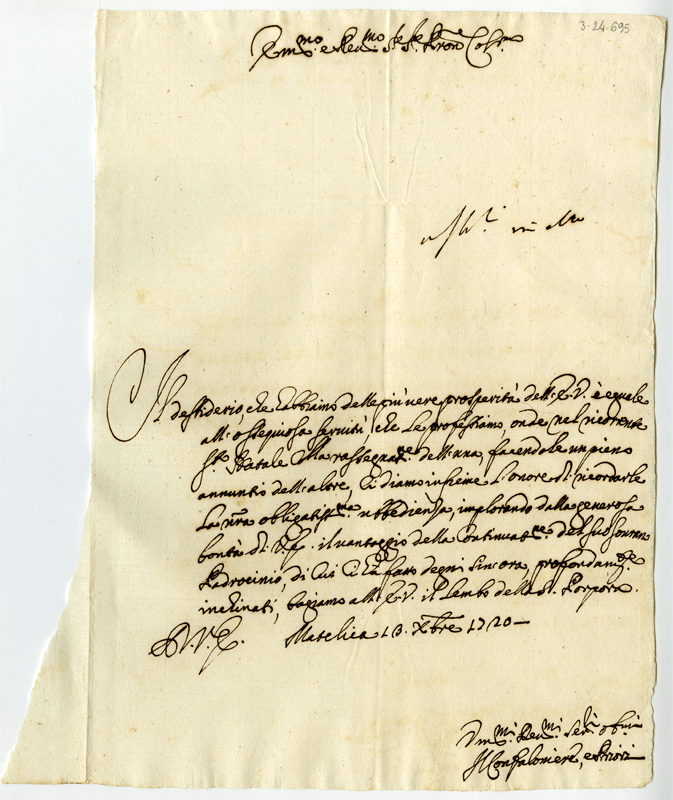 3-24-695
Em.mo e Rev.mo Sig.e Sig.e Pron Col.mo
Il desiderio, che habbiamo delle più vere prosperità dell'E.V. è eguale
all'ossequiosa servitù, che le professiamo, onde nel ricorrente
S.to Natale alla rassegnat.ne dell'una, facendole un pieno
annuntio dell'altre, ci diamo insieme l'onore di ricordarle
la nra obligatiss.ma ubbedienza, implorando dalla generosa
bontà di V.E. il vantaggio della continuat.ne del suo sovrano
Padrocinio, di cui ci hà fatto degni sin'ora, e profondam.te
inclinati, bagiamo all'E.V. il Lembo della S. Porpora.
D.V.E. Matelica 13. Xbre 1720
Vmi.mi Dev.mi Ser.i ob.mi
Il Confaloniere, e Priori